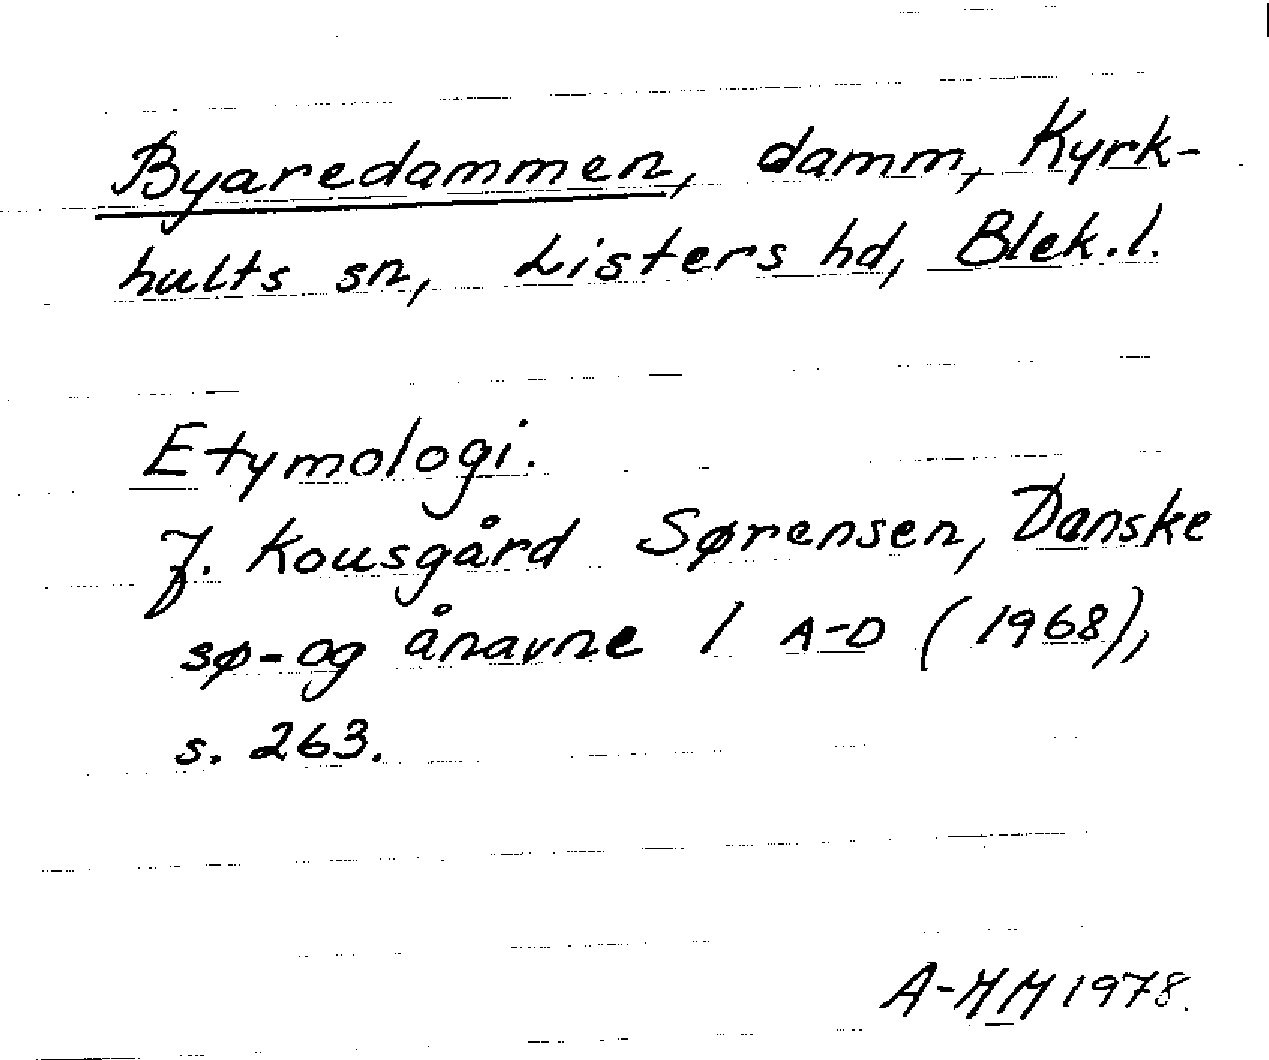 Byaredammen, damm, Kyrk-
hults sn, Listers hd, Blek.l.
Etymologi.
J. Kousgård Sørensen, Danske
sø-og ånavne 1 A-D (1968),
s. 263.
A-MM 1978.